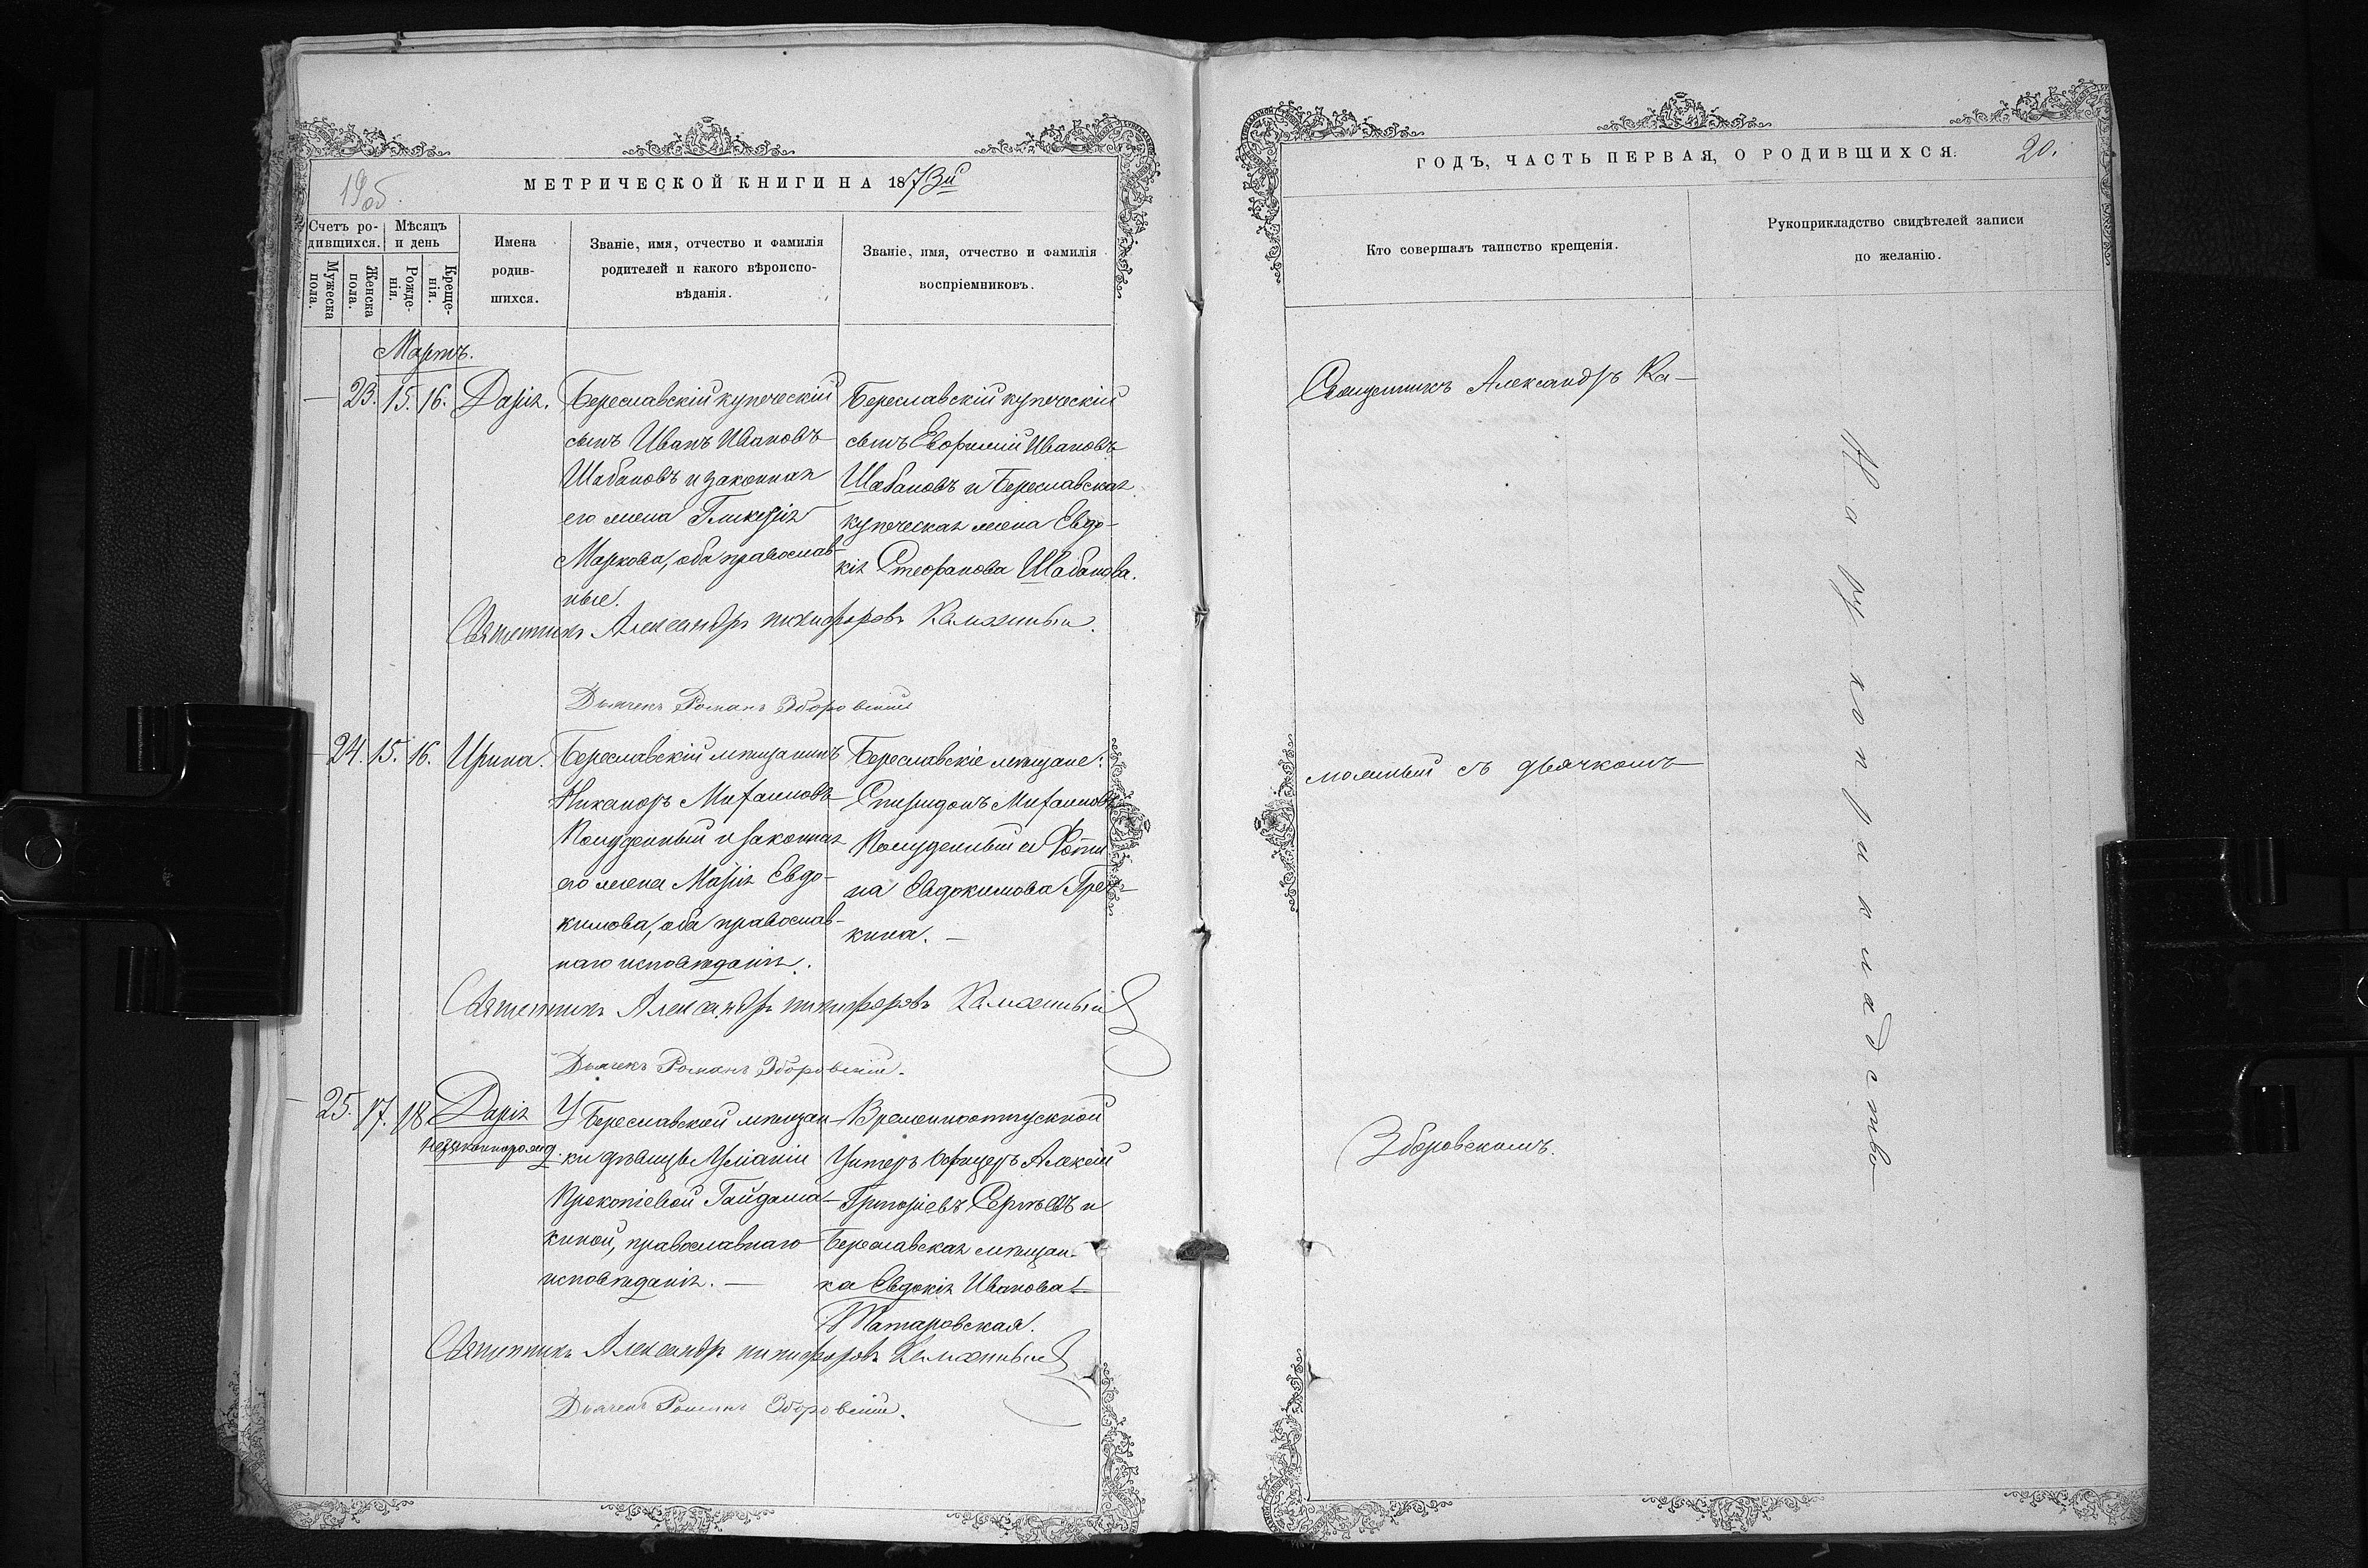 19 об.
МЕТРИЧЕСКОЙ КНИГИ НА 1873й
Счетъ ро-
дившихся.
Мѣсяцъ
и день
Мужеска
пола.
Женска
пола.
Рожде-
нія.
Креще-
нія.
Имена
родив-
шихся.
Званіе, имя, отчество и фамилія
родителей и какого вѣроиспо-
вѣданія.
Званіе, имя, отчество и фамилія
воспріемниковъ.
Мартъ.
— 23. 15. 16. Дарія.
Береславскій купеческій
сынъ Иванъ Ивановъ
Шабановъ и законная
его жена Гликерія
Маркова, оба православ-
ные.
Береславскій купеческій
сынъ Евфимій Ивановъ
Шабановъ и Береславская
купеческая жена Евдо-
кія Стефанова Шабанова.
Священникъ Александръ Никифоровъ Каложный.
Дьячекъ Романъ Зборовскій
24. 15. 16. Ирина.
Береславскій мѣщанинъ
Никаноръ Михаиловъ
Полуденный и законная
его жена Марія Евдо-
кимова, оба православ-
наго исповѣданія.
Береславскіе мѣщане:
Спиридонъ Михаиловъ
Полуденный и Фоти
на Евдокимова Греч-
кина. —
Священникъ Александръ Никифоровъ
Дьячекъ Романъ Зборовскій.
— 25. 17. 18. Дарія
незаконнорожд.
У Береславской мѣщан-
ки дѣвицы Уліаніи
Прокопіевой Гайдама-
киной, православнаго
исповѣданія. —
Временноотпускной
Унтеръ Офицеръ Алексій
Григоріевъ Сергѣевъ и
Береславская мѣщан-
ка Евдокія Иванова
Татаровская.
Священникъ Александръ Никифоровъ
Дьячекъ Романъ Зборовскій.
ГОДЪ, ЧАСТЬ ПЕРВАЯ, О РОДИВШИХСЯ.
20.
Кто совершалъ таинство крещенія.
Рукоприкладство свидѣтелей записи
по желанію.
Священникъ Александръ Ка-
ложный съ дьячкомъ
Зборовскимъ.
рукоприкладство